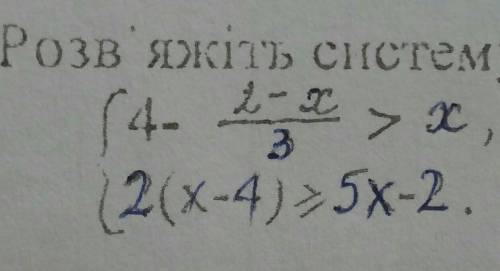 Розв'яжіть систему
{ 4 - (2-x)/3 > x,
2(x-4) ≥ 5x-2.